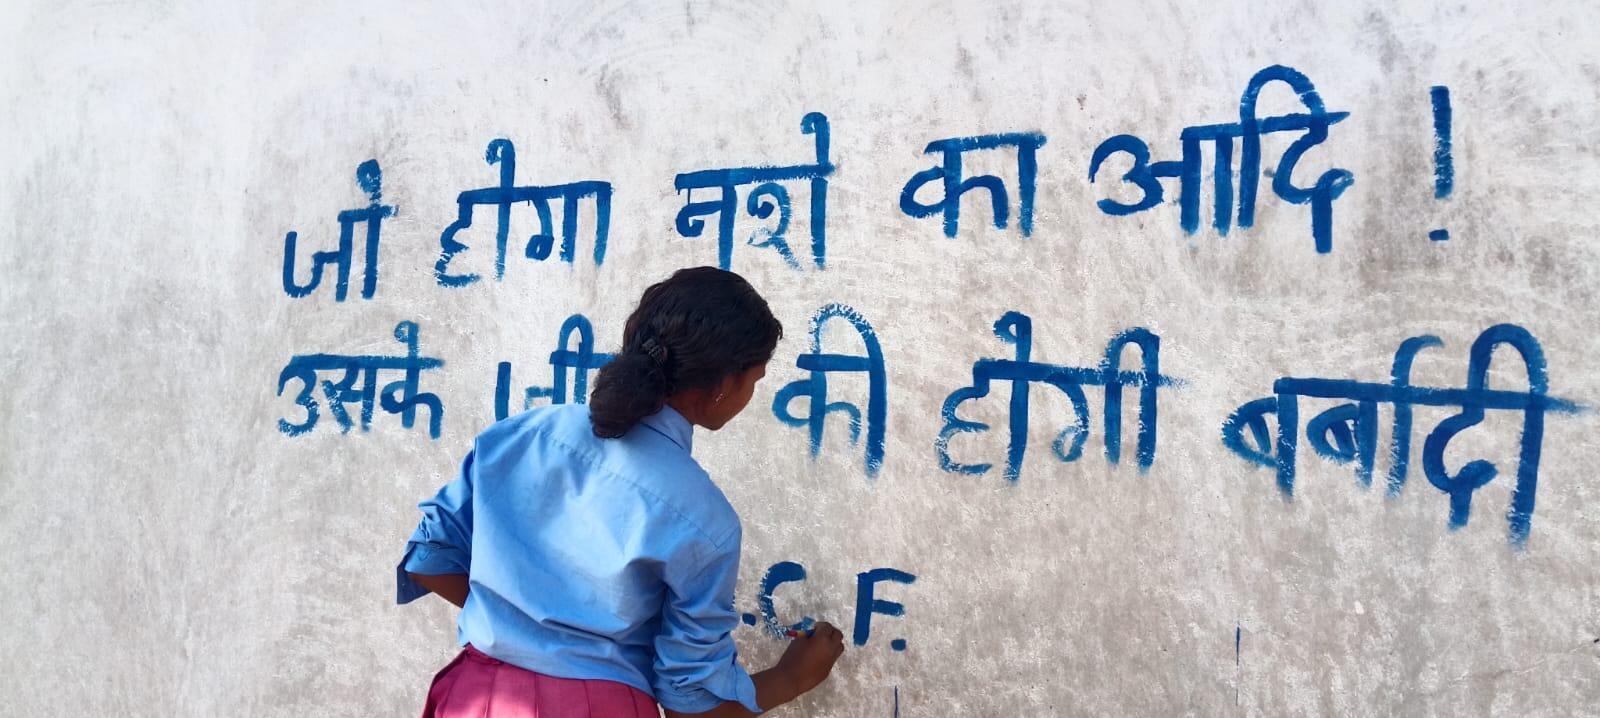 जो होगा नशे का आदि !
उसके की होगी बर्बादी
.C.F.